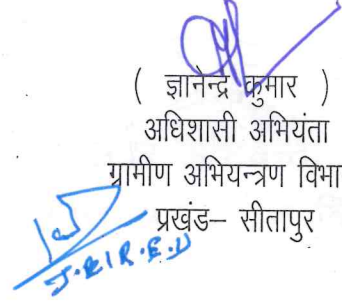 ( ज्ञानेन्द्र कुमार )
अधिशासी अभियंता
ग्रामीण अभियन्त्रण विभा
प्रखंड– सीतापुर